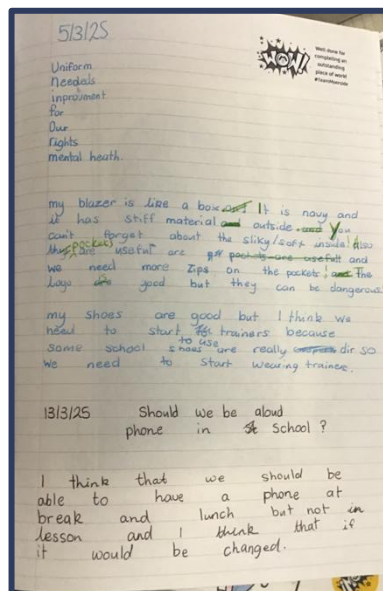 5/3/25
WOW!
Well done for
completing an
outstanding
piece of work!
Uniform
Needels
inprovment
for
Our
rights
mental heath.
my blazer is like a boix It is navy and
it has stiff material and outside You
can't forget about the sliky/soft inside! Also
pockets are useful are and
we need more zips on the pockets! The
Logo good but they can be dangerous
my shoes are good but I think we
need to start trainers because
to use
some school shoes are really dir so
we need to start wearing trainers.
13/3/25 Should we be aloud
phone in School?
I think that we should be
able to have a phone at
break and lunch but not in
lesson and I think that if
it would be changed.